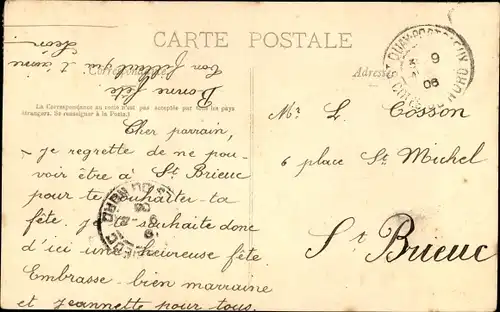 CARTE POSTALE
Correspondance
Adresse
La Correspondance au recto n'est pas acceptée par tous les pays
étrangers. (Se renseigner à la Poste.)
Cher parrain,
je regrette de ne pou-
voir être à St Brieuc
pour te souhaiter ta
fête. je te souhaite donc
d'ici une heureuse fête
Embrasse bien marraine
et jeannette pour tous.
Bonne fête
Ton filleul qui t'aime
Léon
Mr L. Cosson
6 place St Michel
St Brieuc
9
06
COTES DU NORD